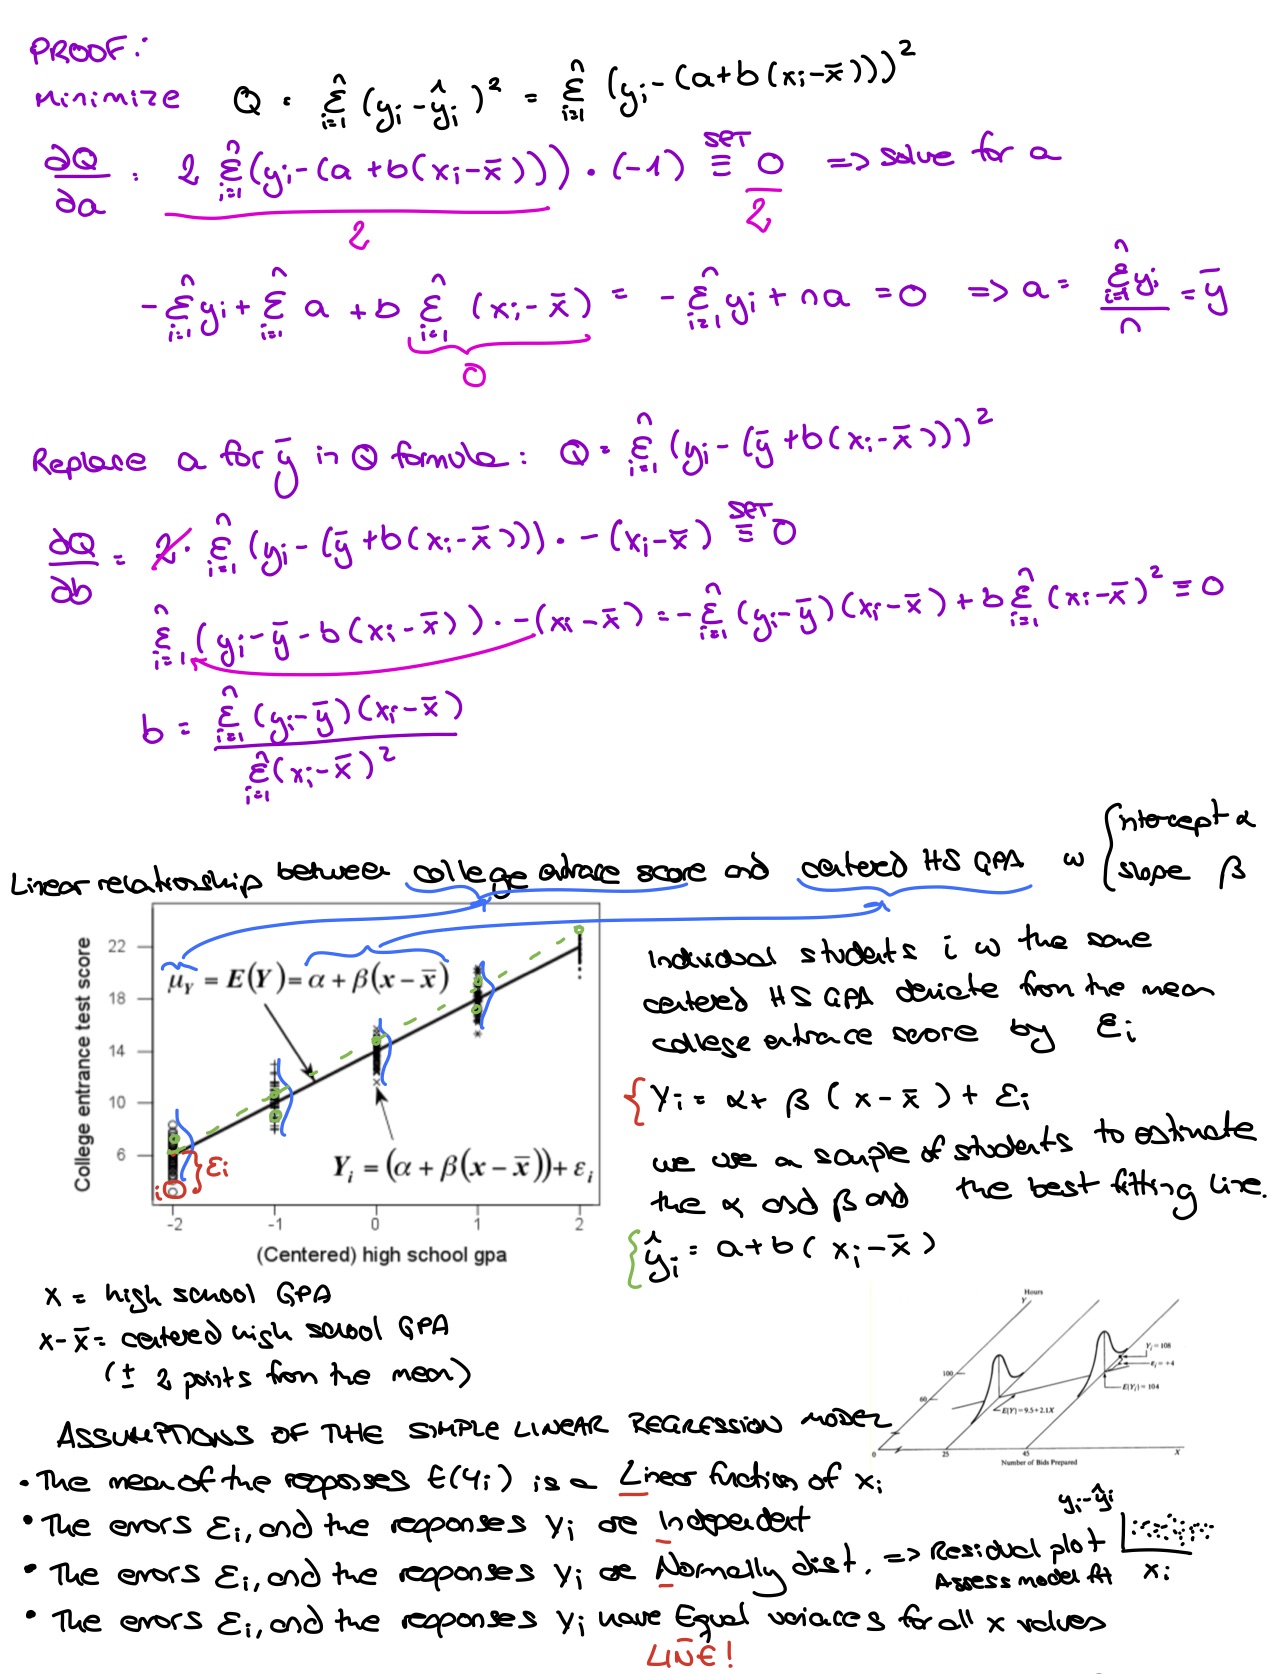 PROOF:
Minimize Q = Σ_{i=1}^n (yi - ŷi)² = Σ_{i=1}^n (yi - (a+b(xi-x̄)))²
∂Q/∂a = 2 Σ_{i=1}^n (yi - (a+b(xi-x̄))) · (-1) SET ≡ 0 => solve for a
2 2
- Σ_{i=1}^n yi + Σ_{i=1}^n a + b Σ_{i=1}^n (xi-x̄) = - Σ_{i=1}^n yi + na = 0 => a = Σ_{i=1}^n yi / n = ȳ
0
Replace a for ȳ in Q formula: Q = Σ_{i=1}^n (yi - (ȳ+b(xi-x̄)))²
∂Q/∂b = 2 · Σ_{i=1}^n (yi - (ȳ+b(xi-x̄))) · -(xi-x̄) SET ≡ 0
Σ_{i=1}^n (yi - ȳ - b(xi-x̄)) · -(xi-x̄) = - Σ_{i=1}^n (yi-ȳ)(xi-x̄) + b Σ_{i=1}^n (xi-x̄)² ≡ 0
b = Σ_{i=1}^n (yi-ȳ)(xi-x̄) / Σ_{i=1}^n (xi-x̄)²
Linear relationship between college entrace score and centered HS GPA w { intercept α
slope β
College entrance test score
22
18
14
10
6
μY = E(Y) = α + β(x - x̄)
Yi = (α + β(x - x̄)) + εi
εi
i
-2 -1 0 1 2
(Centered) high school gpa
Individual students i w the same
centered HS GPA deviate from the mean
college entrace score by εi
{ Yi = α + β (x - x̄) + εi
we use a sample of students to estimate
the α and β and the best fitting line.
{ ŷi = a + b (xi - x̄)
x = high school GPA
x - x̄ = centered high school GPA
(± 2 points from the mean)
Hours
Y
100
60
Yi = 108
εi = +4
E(Yi) = 104
E(Y) = 9.5 + 2.1X
0 25 45 X
Number of Bids Prepared
ASSUMPTIONS OF THE SIMPLE LINEAR REGRESSION MODEL
• The mean of the responses E(Yi) is a Linear function of xi
• The errors εi, and the responses Yi are Independent
• The errors εi, and the responses Yi are Normally dist. => Residual plot
Assess model fit
yi - ŷi
xi
• The errors εi, and the responses Yi have Equal variaces for all x values
LINE!